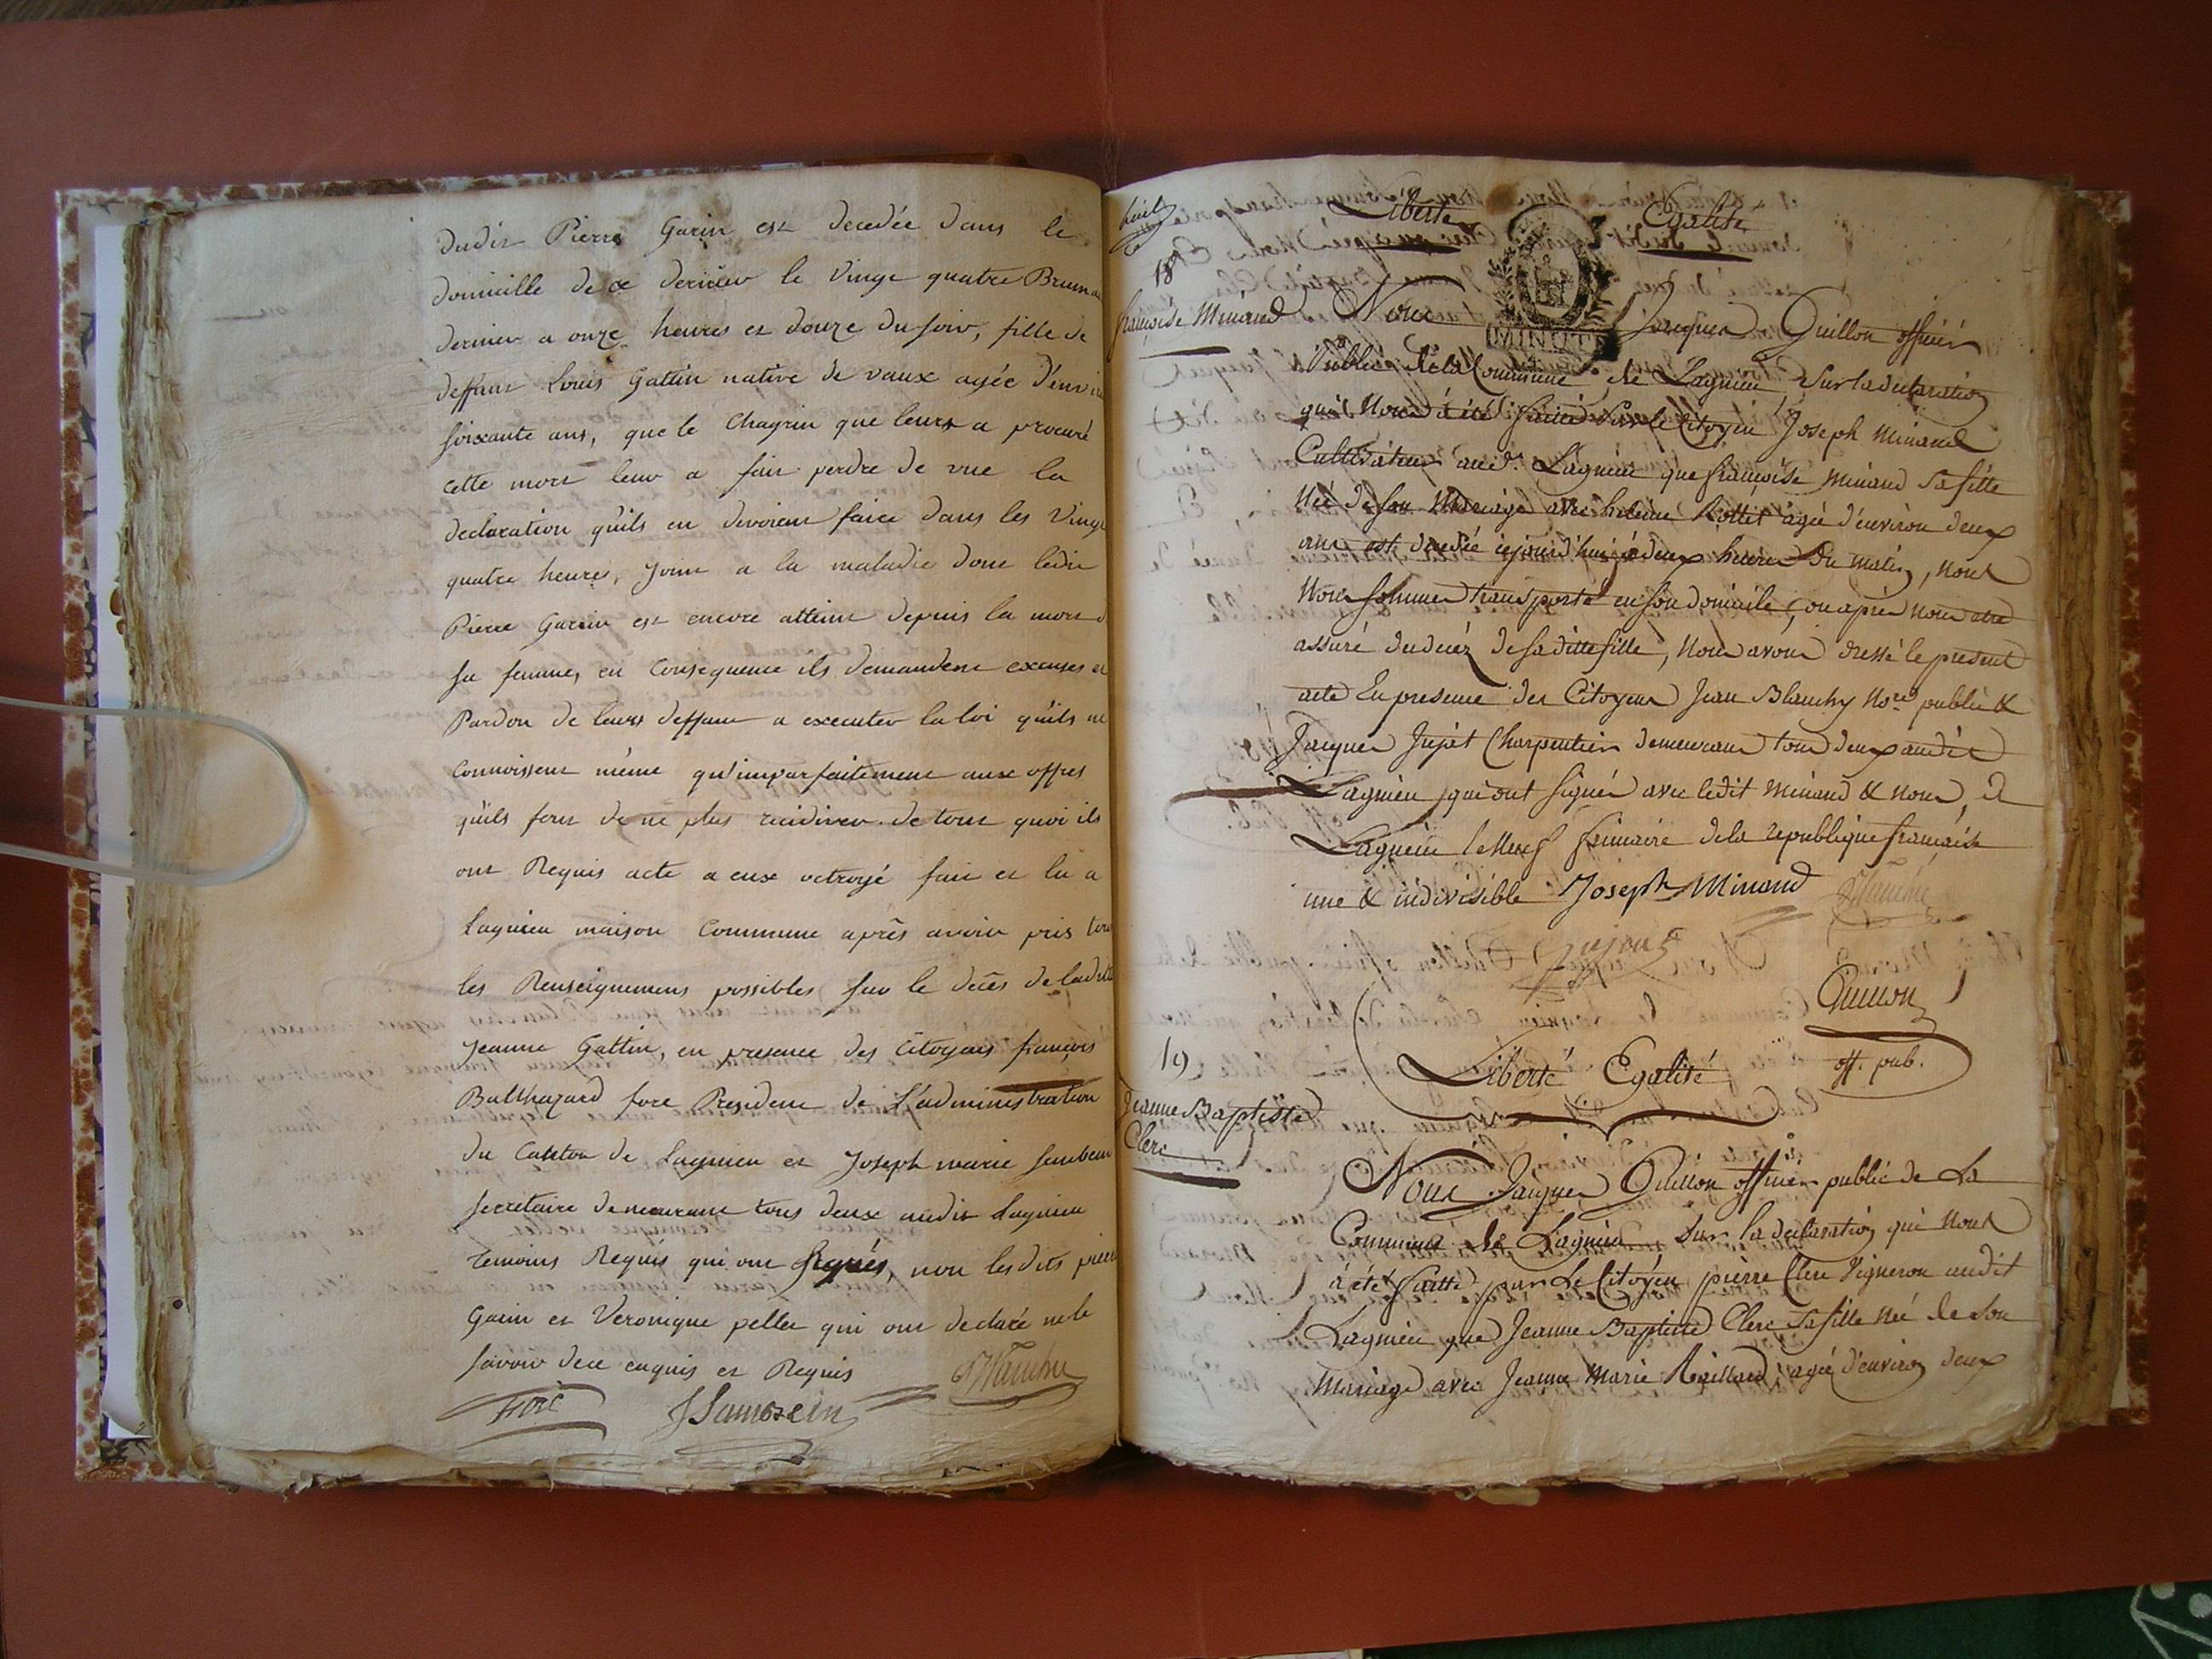 dudit Pierre Garin est decedée dans le
domicille de ce dernier le vingt quatre Brumai
dernier a onze heures et douze du soir, fille de
deffunt Louis Gattin native de vaux agée d'envir
soixante ans, que le Chagrin que leurs a procuré
cette mort leur a fait perdre de vue la
declaration qu'ils en devoient faire dans les Vingt
quatre heures, joint a la maladie dont ledit
Pierre Garin est encore atteint depuis la mort d
sa femme, en Consequence ils demandent excuses et
Pardon de leurs deffaut a executer la loi qu'ils ne
Connoissent même qu'imparfaitement aux offres
qu'ils font de ne plus recidiver. de tout quoi ils
ont Requis acte a eux octroyé fait et lu a
Lagnieu maison Commune après avoir pris tou
les Renseignemens possibles sur le decès de ladite
Jeanne Gattin, en presence des Citoyens françois
Balthazard fore President de L'administration
du Canton de Lagnieu et Joseph marie
secretaire demeurant tous deux audit Lagnieu
temoins Requis qui ont signés, non lesdits pierre
Garin et Veronique pellet qui ont declaré ne le
savoir de ce enquis et Requis
fore
huit
Liberté Egalité
18
françoise Minand
MINUTE
Nous Jacques Quillon officier
Public de la Commune de Lagnieu Sur la declaration
qui Nous à été faitte Par le Citoyen Joseph minand
Cultivateur aud.t Lagnieu que françoise minand Sa fille
Née de son Mariage avec heleine Rottet agée d'environ deux
ans est decedée cejourd'hui à deux heures Du matin, Nous
Nous sommes transporté en son domicile, ou après nous etre
assuré du decéz de sa ditte fille, Nous avons dressé le present
acte En presence des Citoyens Jean Blanchy No.re public &
Jacques Jujat Charpentier demeurant tous deux audit
Lagnieu, qui ont signés avec ledit minand & nous, à
Lagnieu le Neuf frimaire de la republique française
une & indivisible Joseph Minand
Quillon
off. pub.
19
Liberté Egalité
Jeanne Baptiste
Clerc
Nous Jacques Quillon officier public de La
Commune de Lagnieu Sur la declaration qui Nous
à été faitte par Le Citoyen pierre Clerc Vigneron audit
Lagnieu que Jeanne Baptiste Clerc Sa fille Née de Son
Mariage avec Jeanne Marie Raillard, agée d'environ deux